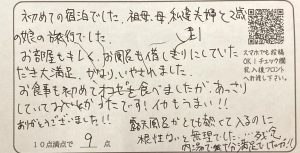 初めての宿泊でした。祖母、母、私達夫婦と2歳
の娘の旅行でした。
お部屋もキレイ、お風呂も貸し切りにしていた
だき大満足。かなりいやされました。
お食事も初めてオコゼを食べましたが、あっさり
していてみごとがすきです!イカもうまい!!
ありがとうございました!!
露天風呂がとても熱くて入るのに
根性ないと無理でした…残念
内湯で 満足でしたが!!
10点満点で 9 点
スマホでも投稿
OK!チェック欄
記入後フロント
へお渡し下さい。